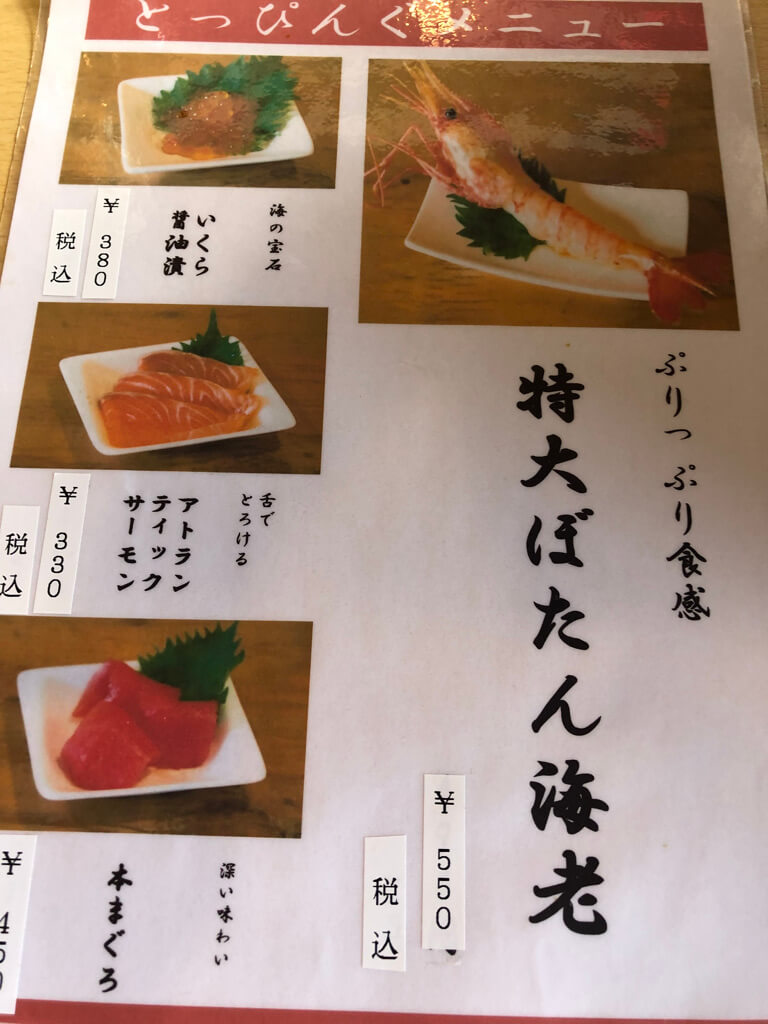 とっぴんぐメニュー
ぷりっぷり食感
特大ぼたん海老
¥550
税込
海の宝石
いくら
醤油漬
¥380
税込
舌で
とろける
アトラン
ティック
サーモン
¥330
税込
深い味わい
本まぐろ
¥450